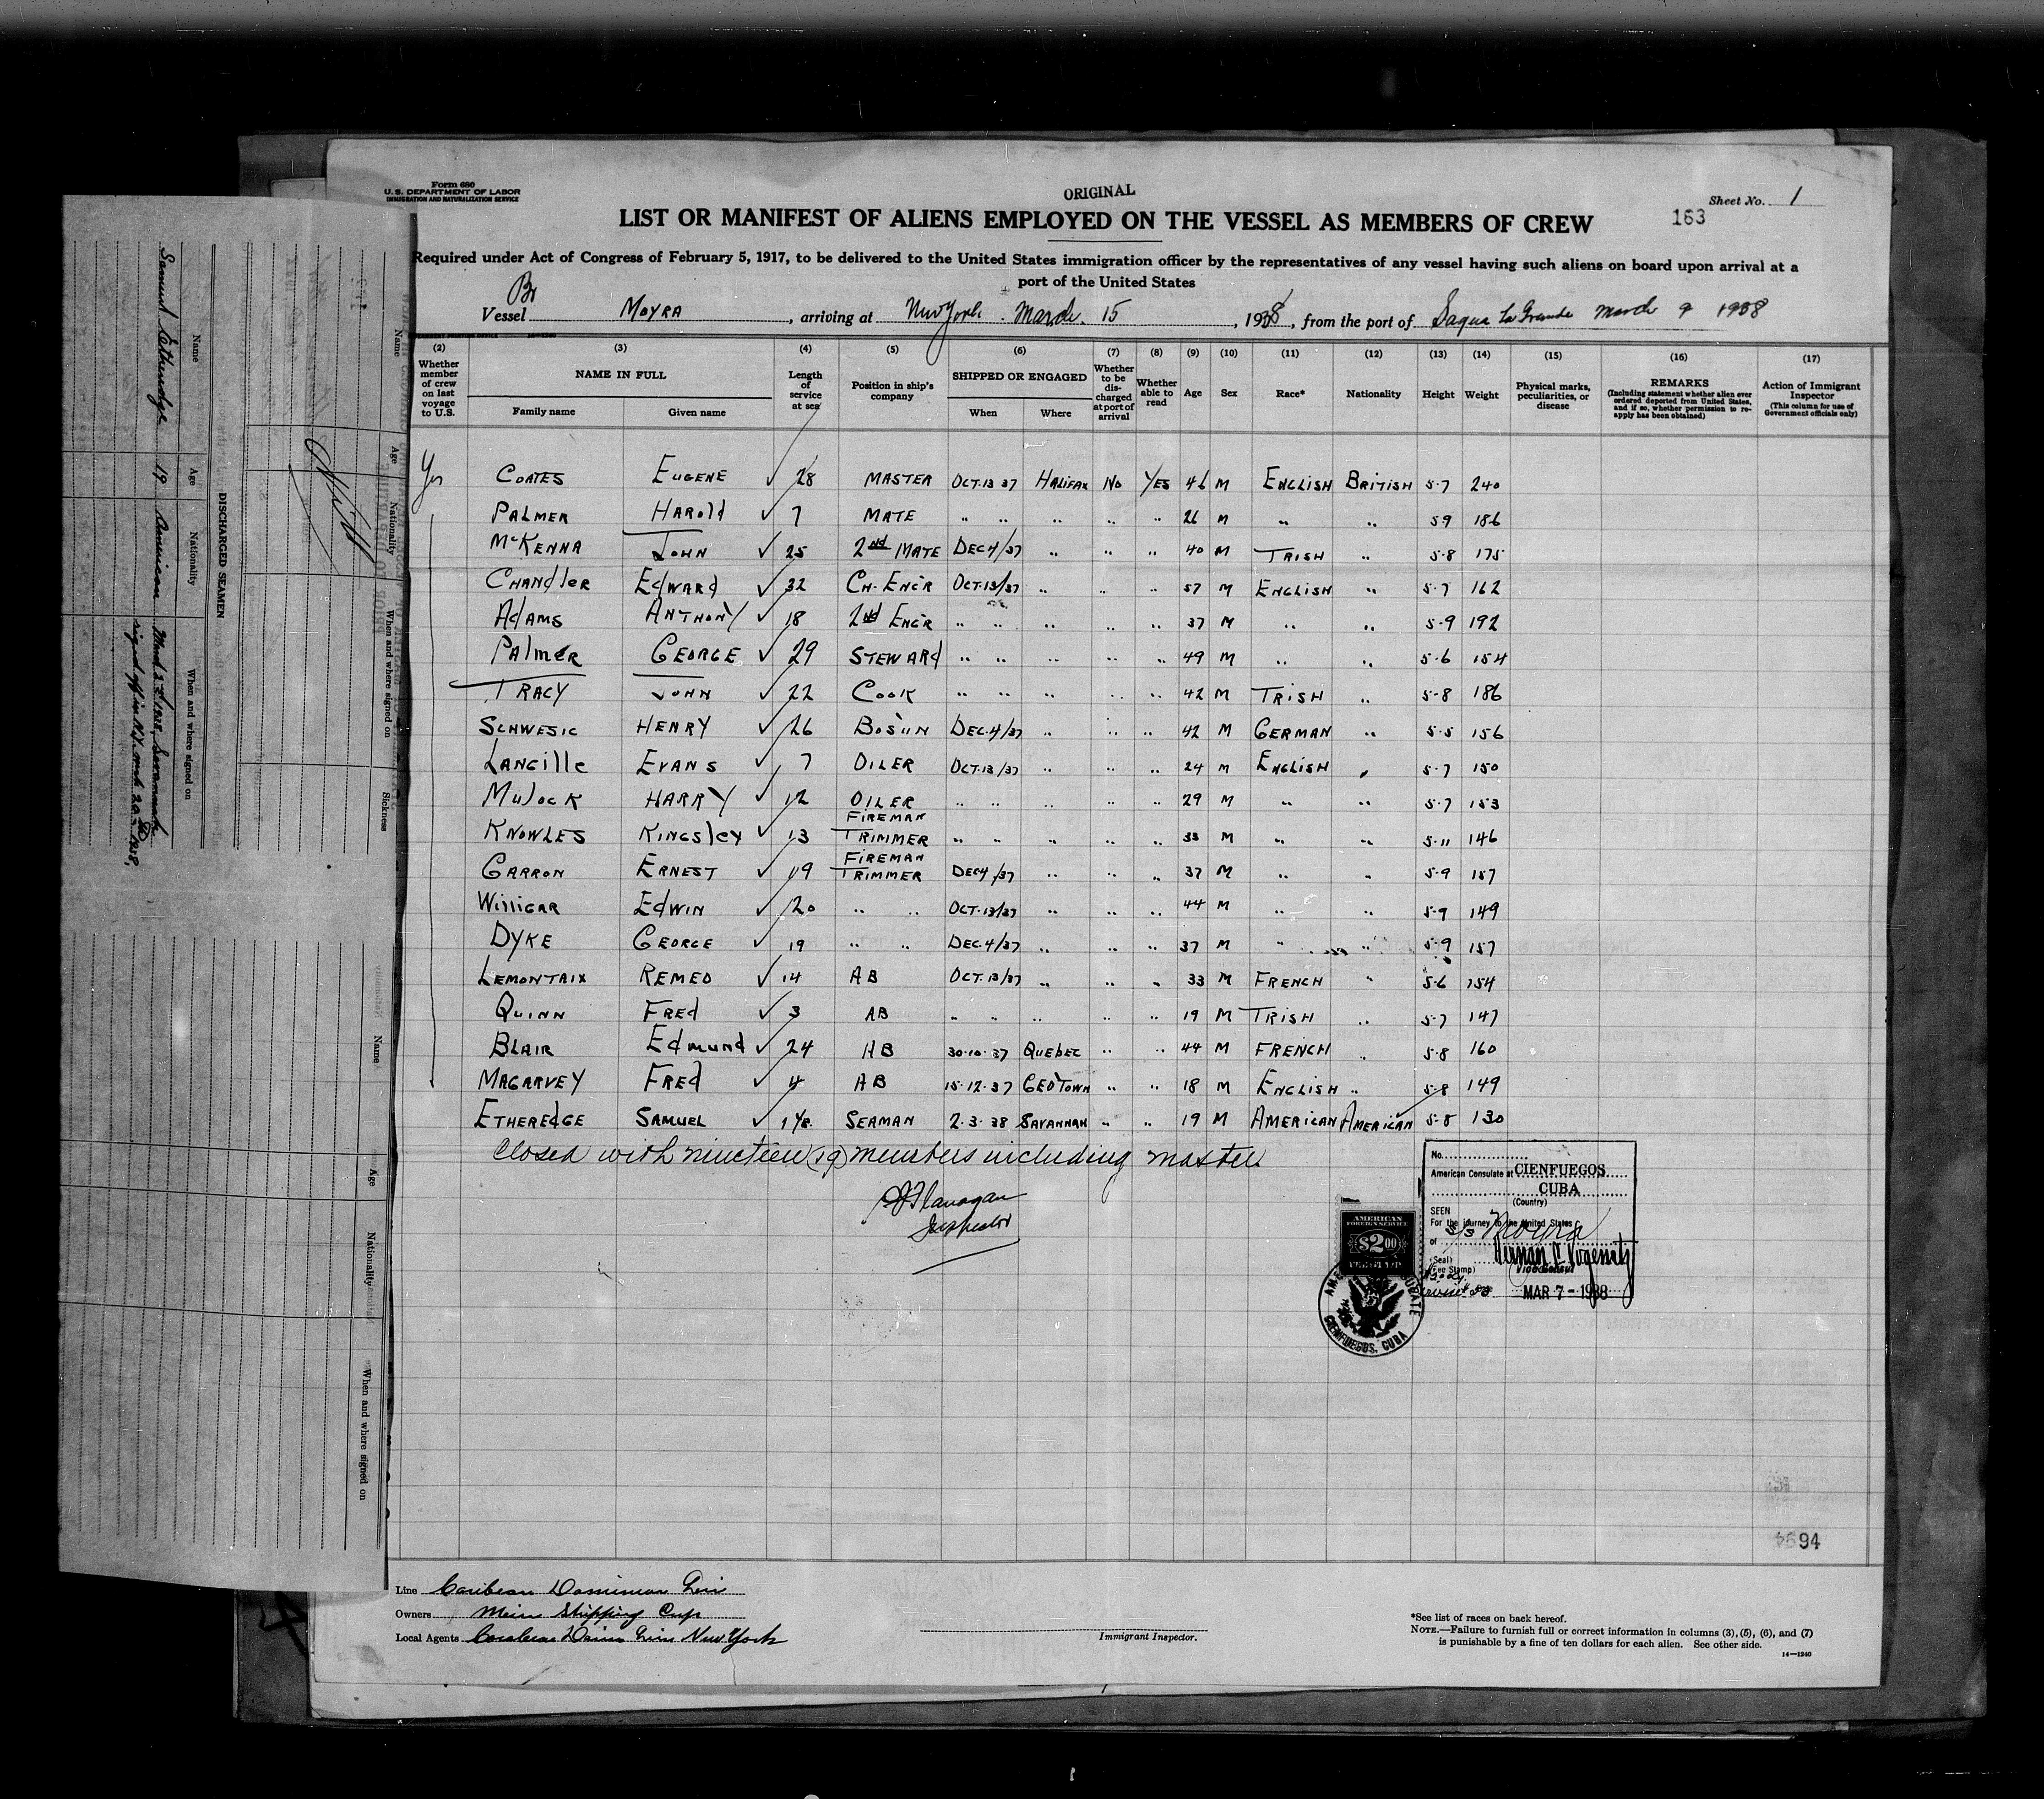 Form 680
U. S. DEPARTMENT OF LABOR
IMMIGRATION AND NATURALIZATION SERVICE
ORIGINAL
Sheet No. 1
163
LIST OR MANIFEST OF ALIENS EMPLOYED ON THE VESSEL AS MEMBERS OF CREW
Required under Act of Congress of February 5, 1917, to be delivered to the United States immigration officer by the representatives of any vessel having such aliens on board upon arrival at a
port of the United States
Br
Vessel MOYRA, arriving at New York. March. 15, 1938, from the port of Sagua La Grande March 9 1938
(2) (3) (4) (5) (6) (7) (8) (9) (10) (11) (12) (13) (14) (15) (16) (17)
Whether member of crew on last voyage to U.S. NAME IN FULL Family name Given name Length of service at sea Position in ship's company SHIPPED OR ENGAGED When Where Whether to be discharged at port of arrival Whether able to read Age Sex Race* Nationality Height Weight Physical marks, peculiarities, or disease REMARKS (Including statement whether alien ever ordered deported from United States, and if so, whether permission to reapply has been obtained) Action of Immigrant Inspector (This column for use of Government officials only)
Yes COATES EUGENE ✓ 28 MASTER OCT.13 37 HALIFAX NO YES 46 M ENGLISH BRITISH 5-7 240
PALMER HAROLD ✓ 7 MATE " " " " " 26 M " " 5 9 186
McKENNA JOHN ✓ 25 2nd MATE DEC 4/37 " " " 40 M IRISH " 5-8 175
CHANDLER EDWARD ✓ 32 CH-ENG'R OCT.13/37 " " " 57 M ENGLISH " 5-7 162
ADAMS ANTHONY ✓ 18 2nd ENG'R " " " " " 37 M " " 5-9 192
PALMER GEORGE ✓ 29 STEWARD " " " " " 49 M " " 5-6 154
TRACY JOHN ✓ 22 COOK " " " " " 42 M IRISH " 5-8 186
SCHWESIG HENRY ✓ 26 BOSUN DEC.4/37 " " " 42 M GERMAN " 5-5 156
LANGILLE EVANS ✓ 7 OILER OCT.13/37 " " " 24 M ENGLISH " 5-7 150
MULOCK HARRY ✓ 12 OILER " " " " " 29 M " " 5-7 153
KNOWLES KINGSLEY ✓ 13 FIREMAN TRIMMER " " " " " 33 M " " 5-11 146
GARRON ERNEST ✓ 19 FIREMAN TRIMMER DEC4/37 " " " 37 M " " 5-9 157
WILLIGAR EDWIN ✓ 20 " " OCT.13/37 " " " 44 M " " 5-9 149
DYKE GEORGE ✓ 19 " " DEC.4/37 " " " 37 M " " 5-9 157
LEMONTAIX REMEO ✓ 14 AB OCT.13/37 " " " 33 M FRENCH " 5-6 154
QUINN FRED ✓ 3 AB " " " " " 19 M IRISH " 5-7 147
BLAIR EDMUND ✓ 24 AB 30-10-37 QUEBEC " " 44 M FRENCH " 5-8 160
MAGARVEY FRED ✓ 4 AB 15-12-37 GEOTOWN " " 18 M ENGLISH " 5-8 149
ETHEREDGE SAMUEL ✓ SEAMAN 2-3-38 SAVANNAH " " 19 M AMERICAN AMERICAN 5-8 130
Closed with nineteen (19) members including master
Flanagan
Inspector
No.
American Consulate at CIENFUEGOS
CUBA
(Country)
SEEN
For the journey to the United States
of S/S Moyra
(Seal)
(Fee Stamp)
Vice Consul
MAR 7 - 1938
AMERICAN
FOREIGN SERVICE
$2.00
CIENFUEGOS, CUBA
94
Line Caribean Dominion Line
Owners Shipping Corp
Local Agents Line New York
Immigrant Inspector.
*See list of races on back hereof.
NOTE.—Failure to furnish full or correct information in columns (3), (5), (6), and (7)
is punishable by a fine of ten dollars for each alien. See other side.
14—1240
DISCHARGED SEAMEN
Name Age Nationality When and where signed on
Samuel Etheredge 19 American March 2nd 1938, Savannah
signed off in N.Y. 1938,
Name Age Nationality When and where signed on Sickness
Name Age Nationality When and where signed on